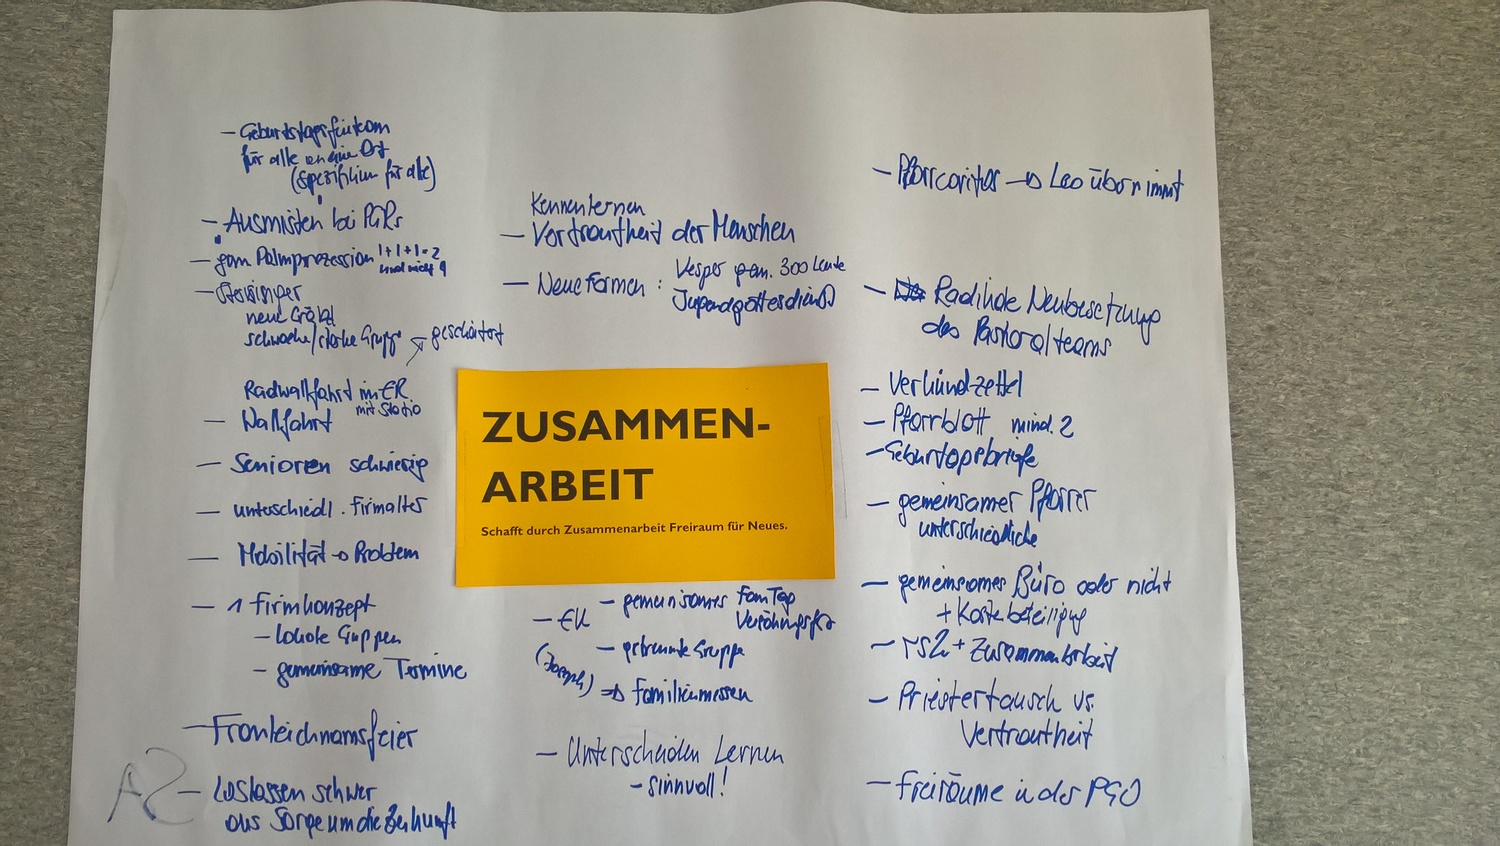 – Geburtstags
für alle an eine Ort
(Spezifikum für alle)
– Ausmisten bei PGRs
– gem Palmprozession 1+1+1=2
und nicht 9
– Sternsinger
neue
schwache/starke Gruppe
Radwallfahrt im ER
mit Statio
– Wallfahrt
– Senioren schwierig
– unterschiedl. Firmalter
– Mobilität → Problem
– 1 Firmkonzept
– lokale Gruppen
– gemeinsame Termine
– Fronleichnamsfeier
– Loslassen schwer
aus Sorge um die Zukunft
A2
Kennenlernen
– Vertrautheit der Menschen
– Neue Formen : Vesper gem. 300 Leute
Jugendgottesdienst
ZUSAMMEN-
ARBEIT
Schafft durch Zusammenarbeit Freiraum für Neues.
– EK – gemeinsames FamTag
– getrennte Gruppe
⇒ Familienmessen
– Unterscheiden Lernen
– sinnvoll!
– Pfarrcaritas → Leo übernimmt
– Radikale Neubesetzung
des Pastoralteams
– Verkündzettel
– Pfarrblatt mind. 2
– Geburtstagsbriefe
– gemeinsamer Pfarrer
unterschiedliche
– gemeinsames Büro oder nicht
+ Kostenbeteiligung
– rs2 + Zusammenarbeit
– Priestertausch vs.
Vertrautheit
– Freiräume in der PGO